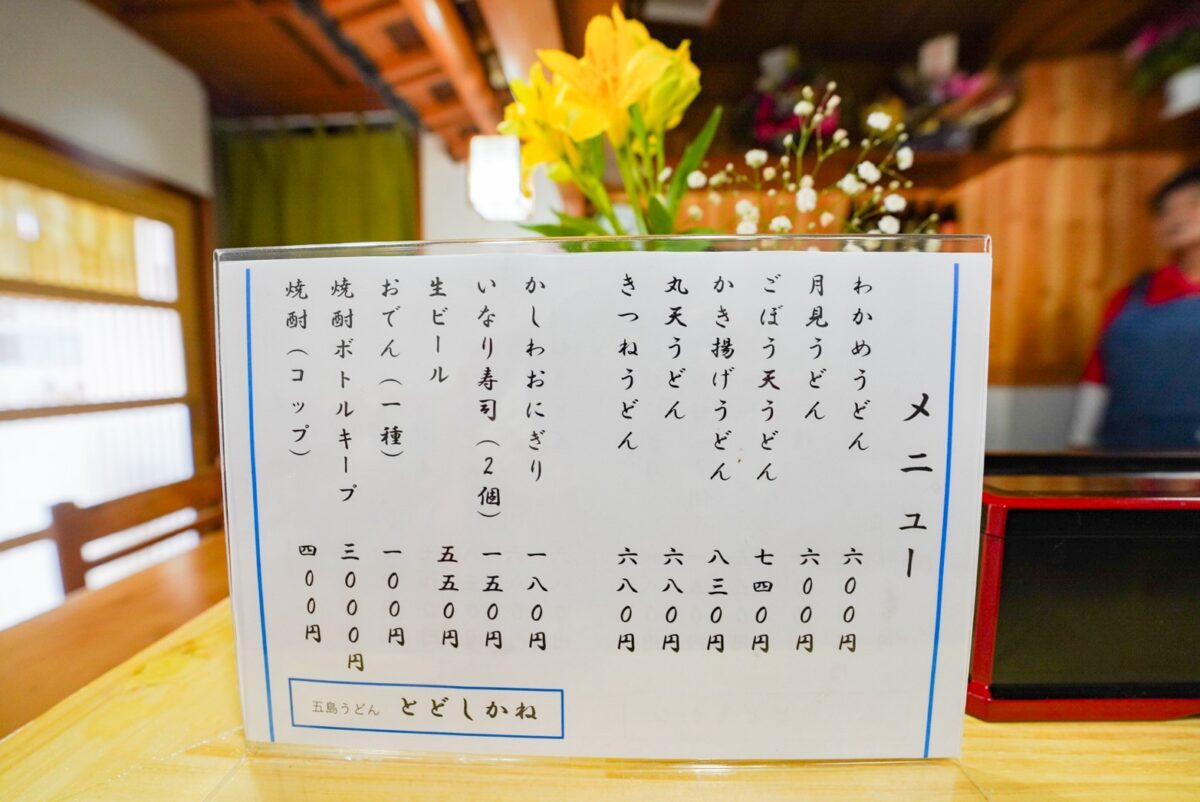 メニュー
わかめうどん 六〇〇円
月見うどん 六〇〇円
ごぼう天うどん 七四〇円
かき揚げうどん 八三〇円
丸天うどん 六八〇円
きつねうどん 六八〇円
かしわおにぎり 一八〇円
いなり寿司（2個） 一五〇円
生ビール 五五〇円
おでん（一種） 一〇〇円
焼酎ボトルキープ 三〇〇〇円
焼酎（コップ） 四〇〇円
五島うどん とどしかね